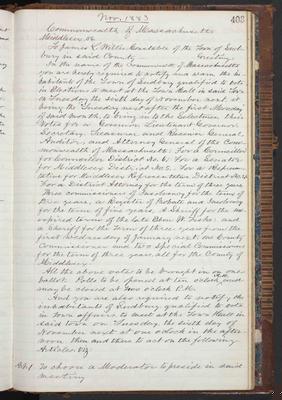 Nov. 1883
403
Commonwealth of Massachusetts
Middlesex, ss.
To James L. Willis Constable of the Town of Sud-
bury in said County Greeting.
In the name of the Commonwealth of Massachusetts
you are hereby required to notify and warn the in-
habitants of the Town of Sudbury qualified to vote
in Elections to meet at the Town Hall in said Town
on Tuesday the sixth day of November next it
being the Tuesday next after the first Monday
of said month, to bring in to the Selectmen their
Votes for a Governor, Lieutenant Governor,
Secretary, Treasurer and Receiver General,
Auditor, and Attorney General of the Com-
monwealth of Massachusetts: For a Councillor
for Councillor District No. 6: For a Senator
for Middlesex District No. 5. For a Represen-
tative for Middlesex Representative District No.
For a District Attorney for the term of three years
Three commissioners of Insolvency for the term of
three years, a Register of Probate and Insolvency
for the term of five years, A Sheriff for the un-
expired term of the late Fiske: and
a Sheriff for the term of three years from the
first Wednesday of January next, one County
Commissioner and two special Commissioners
for the term of three years all for the County of
Middlesex.
All the above votes to be brought in on one
ballot. Polls to be opened at ten o'clock A.M. and
may be closed at two o'clock P.M.
And you are also required to notify the
inhabitants of Sudbury qualified to vote
in Town affairs to meet at the Town Hall in
said town on Tuesday, the sixth day of
November next at one o'clock in the after-
noon then and there to act on the following
Articles viz:
Art. 1. To choose a Moderator to preside in said
meeting